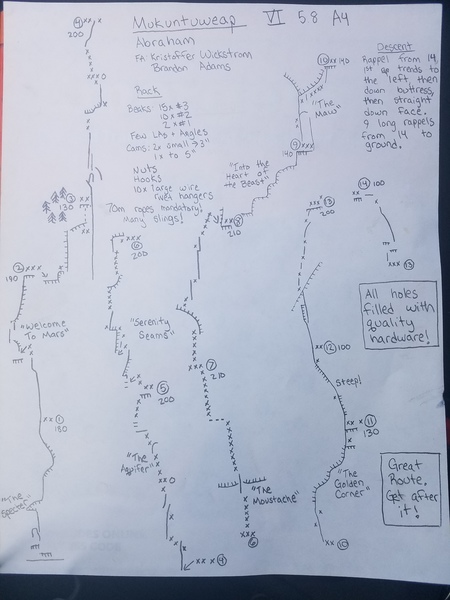 Mukuntuweap VI 5.8 A4
Abraham
FA: Kristoffer Wickstrom
Brandon Adams
Rack
Beaks: 15x #3
10x #2
2x #1
Few LAs + Angles
Cams: 2x small → 3"
1x to 5"
Nuts
Hooks
10x large wire
rivet hangers
70m ropes mandatory!
Many slings!
Descent
Rappel from 14.
1st rap trends to
the left, then
down buttress,
then straight
down face.
9 long rappels
from 14 to
ground.
4
200
3
130
2
190
"Welcome
To Mars"
1
180
"The
Specter"
6
200
"Serenity
Seams"
5
200
"The
4
"Into the
Heart of
the Beast"
8
210
7
210
"The
Moustache"
6
10 140
"The
Maw"
9
140
13
200
12 100
Steep!
11
130
"The
Golden
Corner"
10
14 100
13
All holes
filled with
quality
hardware!
Great
Route.
Get after
it!